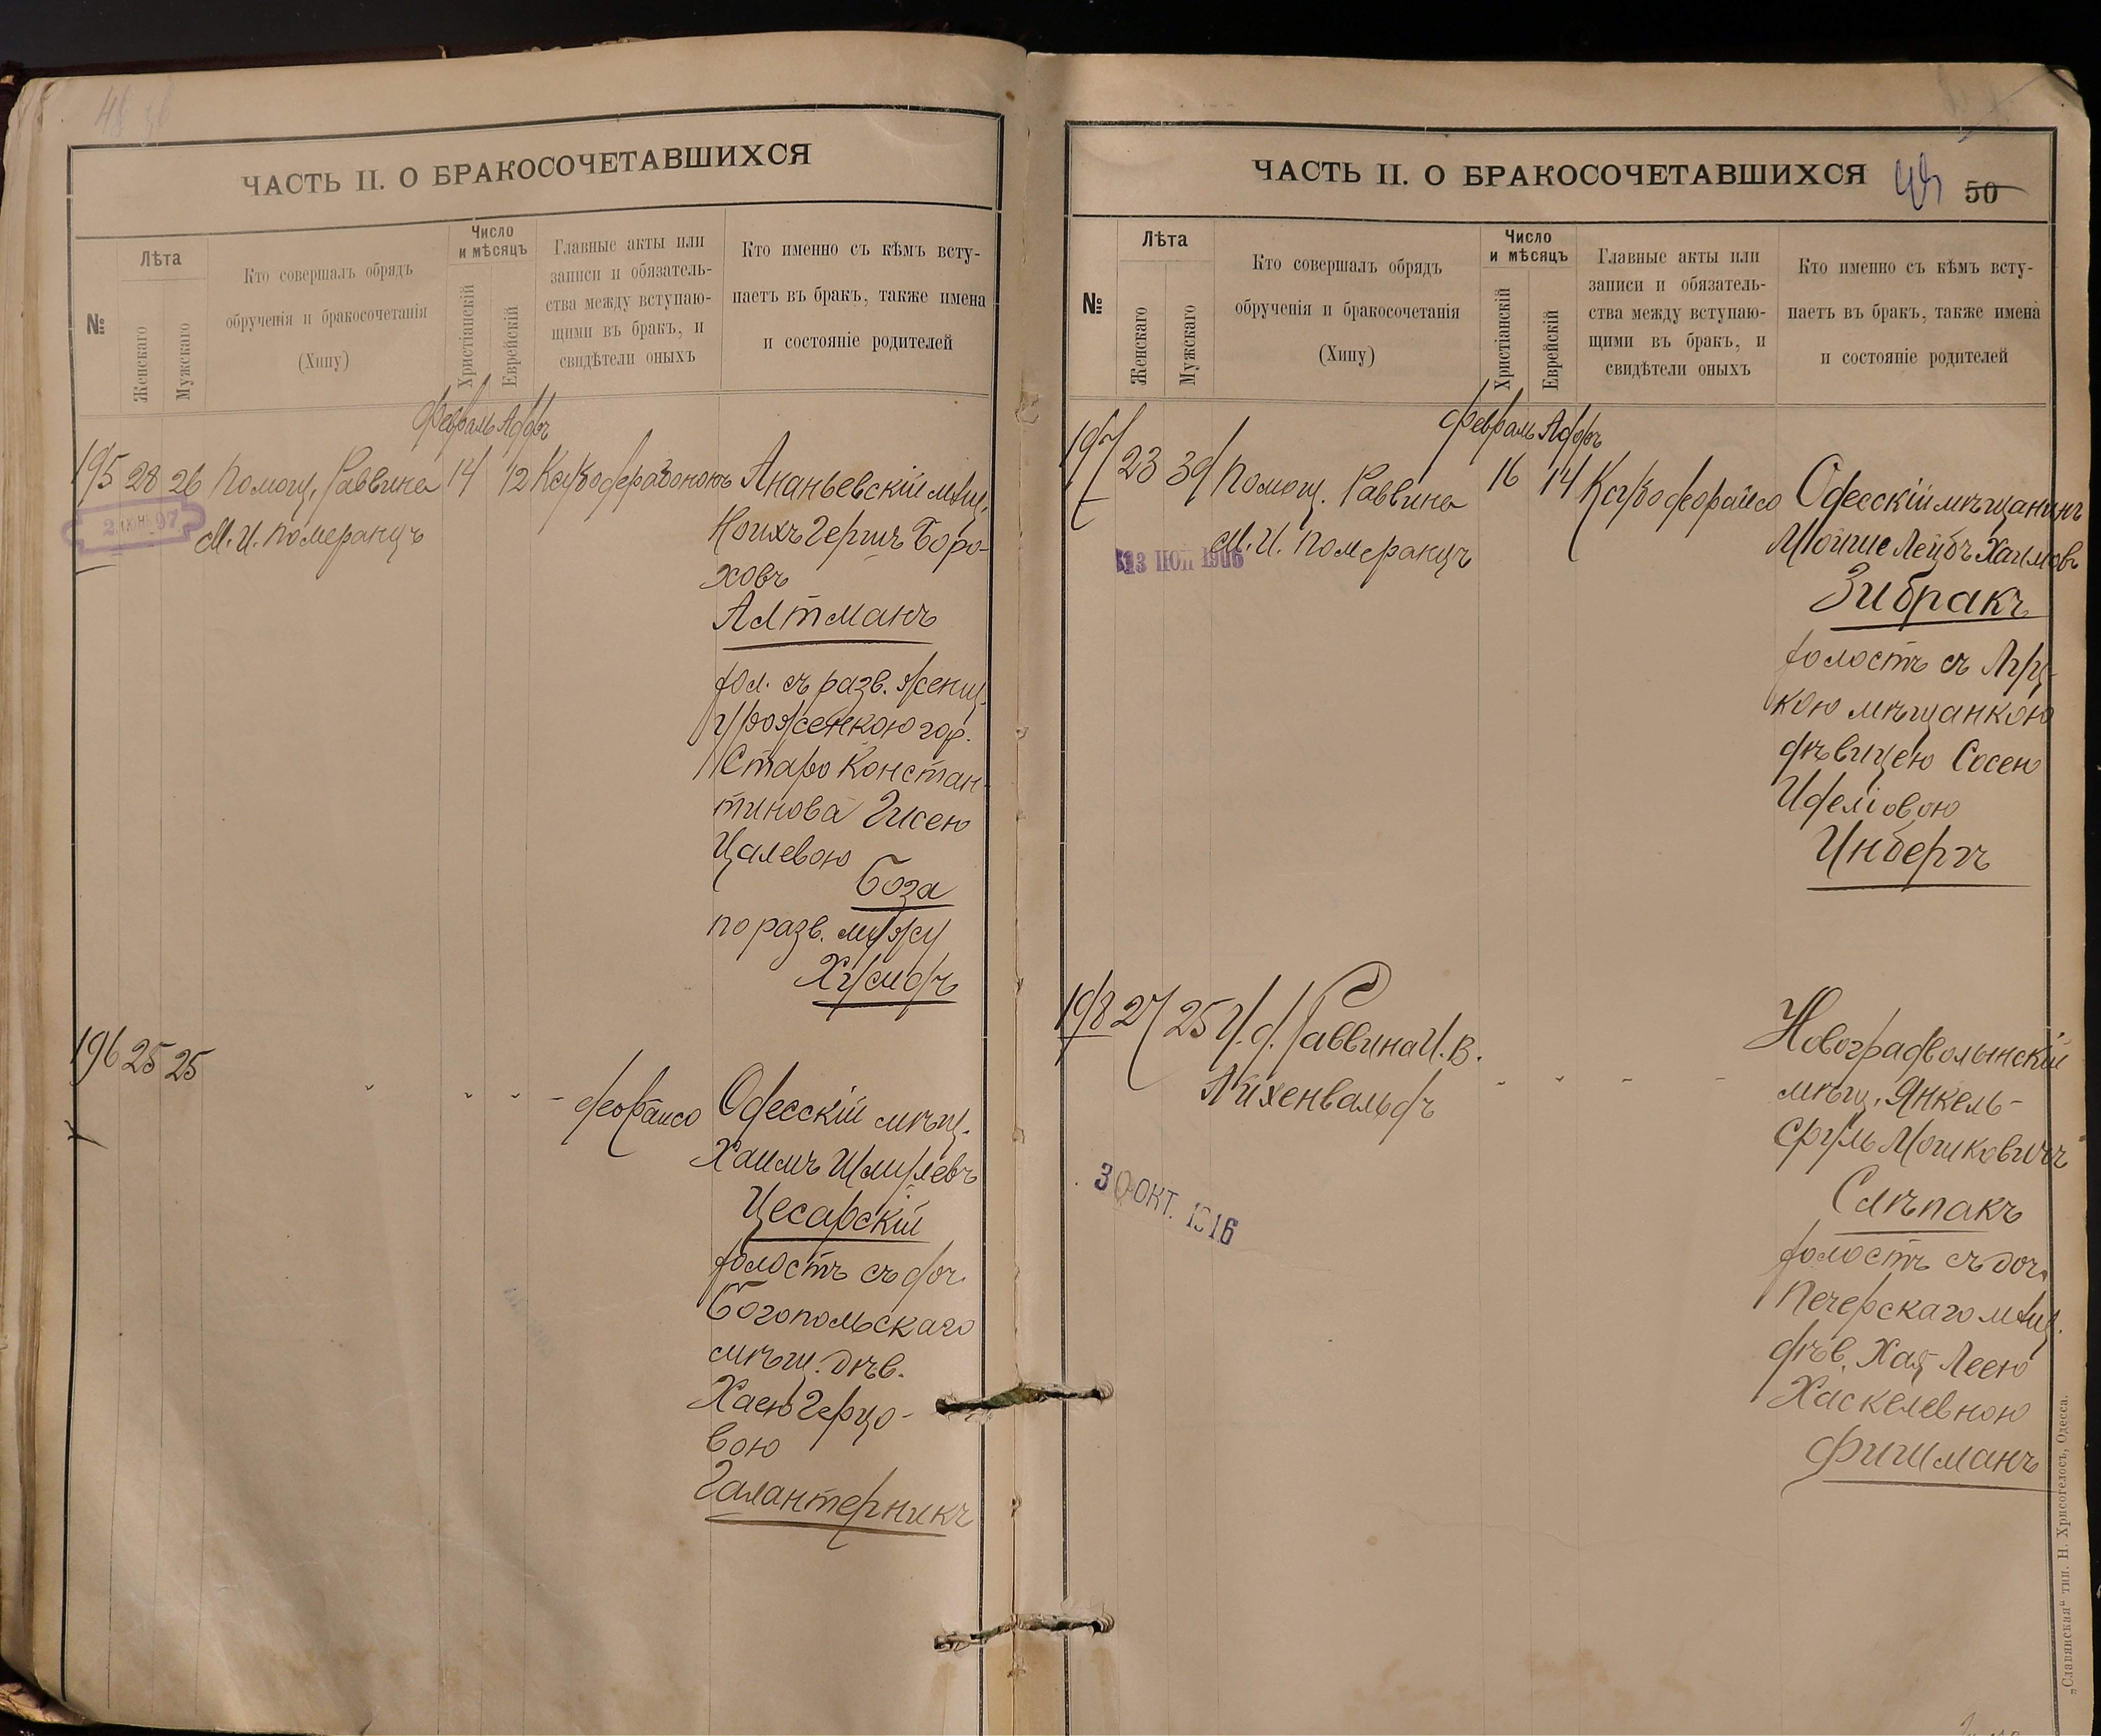 ЧАСТЬ II. О БРАКОСОЧЕТАВШИХСЯ
№
Лѣта
Женскаго
Мужскаго
Кто совершалъ обрядъ
обрученія и бракосочетанія
(Хипу)
Число
и мѣсяцъ
Христіанскій
Еврейскій
Главные акты или
записи и обязатель-
ства между вступаю-
щими въ бракъ, и
свидѣтели оныхъ
Кто именно съ кѣмъ всту-
паетъ въ бракъ, также имена
и состояніе родителей
Февраль Адаръ
195 28 26 Помощ. Раввина 14 12
М. И. Померанцъ
Ананьевскій мѣщ.
Боро-
ховъ
Алтманъ
хол. съ разв. женщ.
урожденкою гор.
Старо Констан-
тинова Гисею
Цалевою
Боза
по разв. мужу
196 25 25
Одесскій мѣщ.
Хаимъ Шмулевъ
Цесарскій
холостъ съ доч.
Богопольскаго
мѣщ. дѣв.
Хаею Герцо-
вою
Галантерникъ
ЧАСТЬ II. О БРАКОСОЧЕТАВШИХСЯ
49 50
№
Лѣта
Женскаго
Мужскаго
Кто совершалъ обрядъ
обрученія и бракосочетанія
(Хипу)
Число
и мѣсяцъ
Христіанскій
Еврейскій
Главные акты или
записи и обязатель-
ства между вступаю-
щими въ бракъ, и
свидѣтели оныхъ
Кто именно съ кѣмъ всту-
паетъ въ бракъ, также имена
и состояніе родителей
Февраль Адаръ
197 23 39 Помощ. Раввина 16 14
М. И. Померанцъ
Одесскій мѣщанинъ
Мойше Лейбъ Хаимовъ
Зибракъ
холостъ съ
кою мѣщанкою
дѣвицею Сосею
Иделіовою
Инбергъ
198 27 25 И. д. Раввина И. В.
Айхенвальдъ
30 ОКТ. 1916
Новоградволынскій
мѣщ. Янкель-
Сруль Мошковичъ
Слѣпакъ
холостъ съ доч.
Печерскаго мѣщ.
дѣв. Хая Леею
Хаскелевною
Фишманъ
„Славянская“ тип. Н. Хрисогелосъ, Одесса.